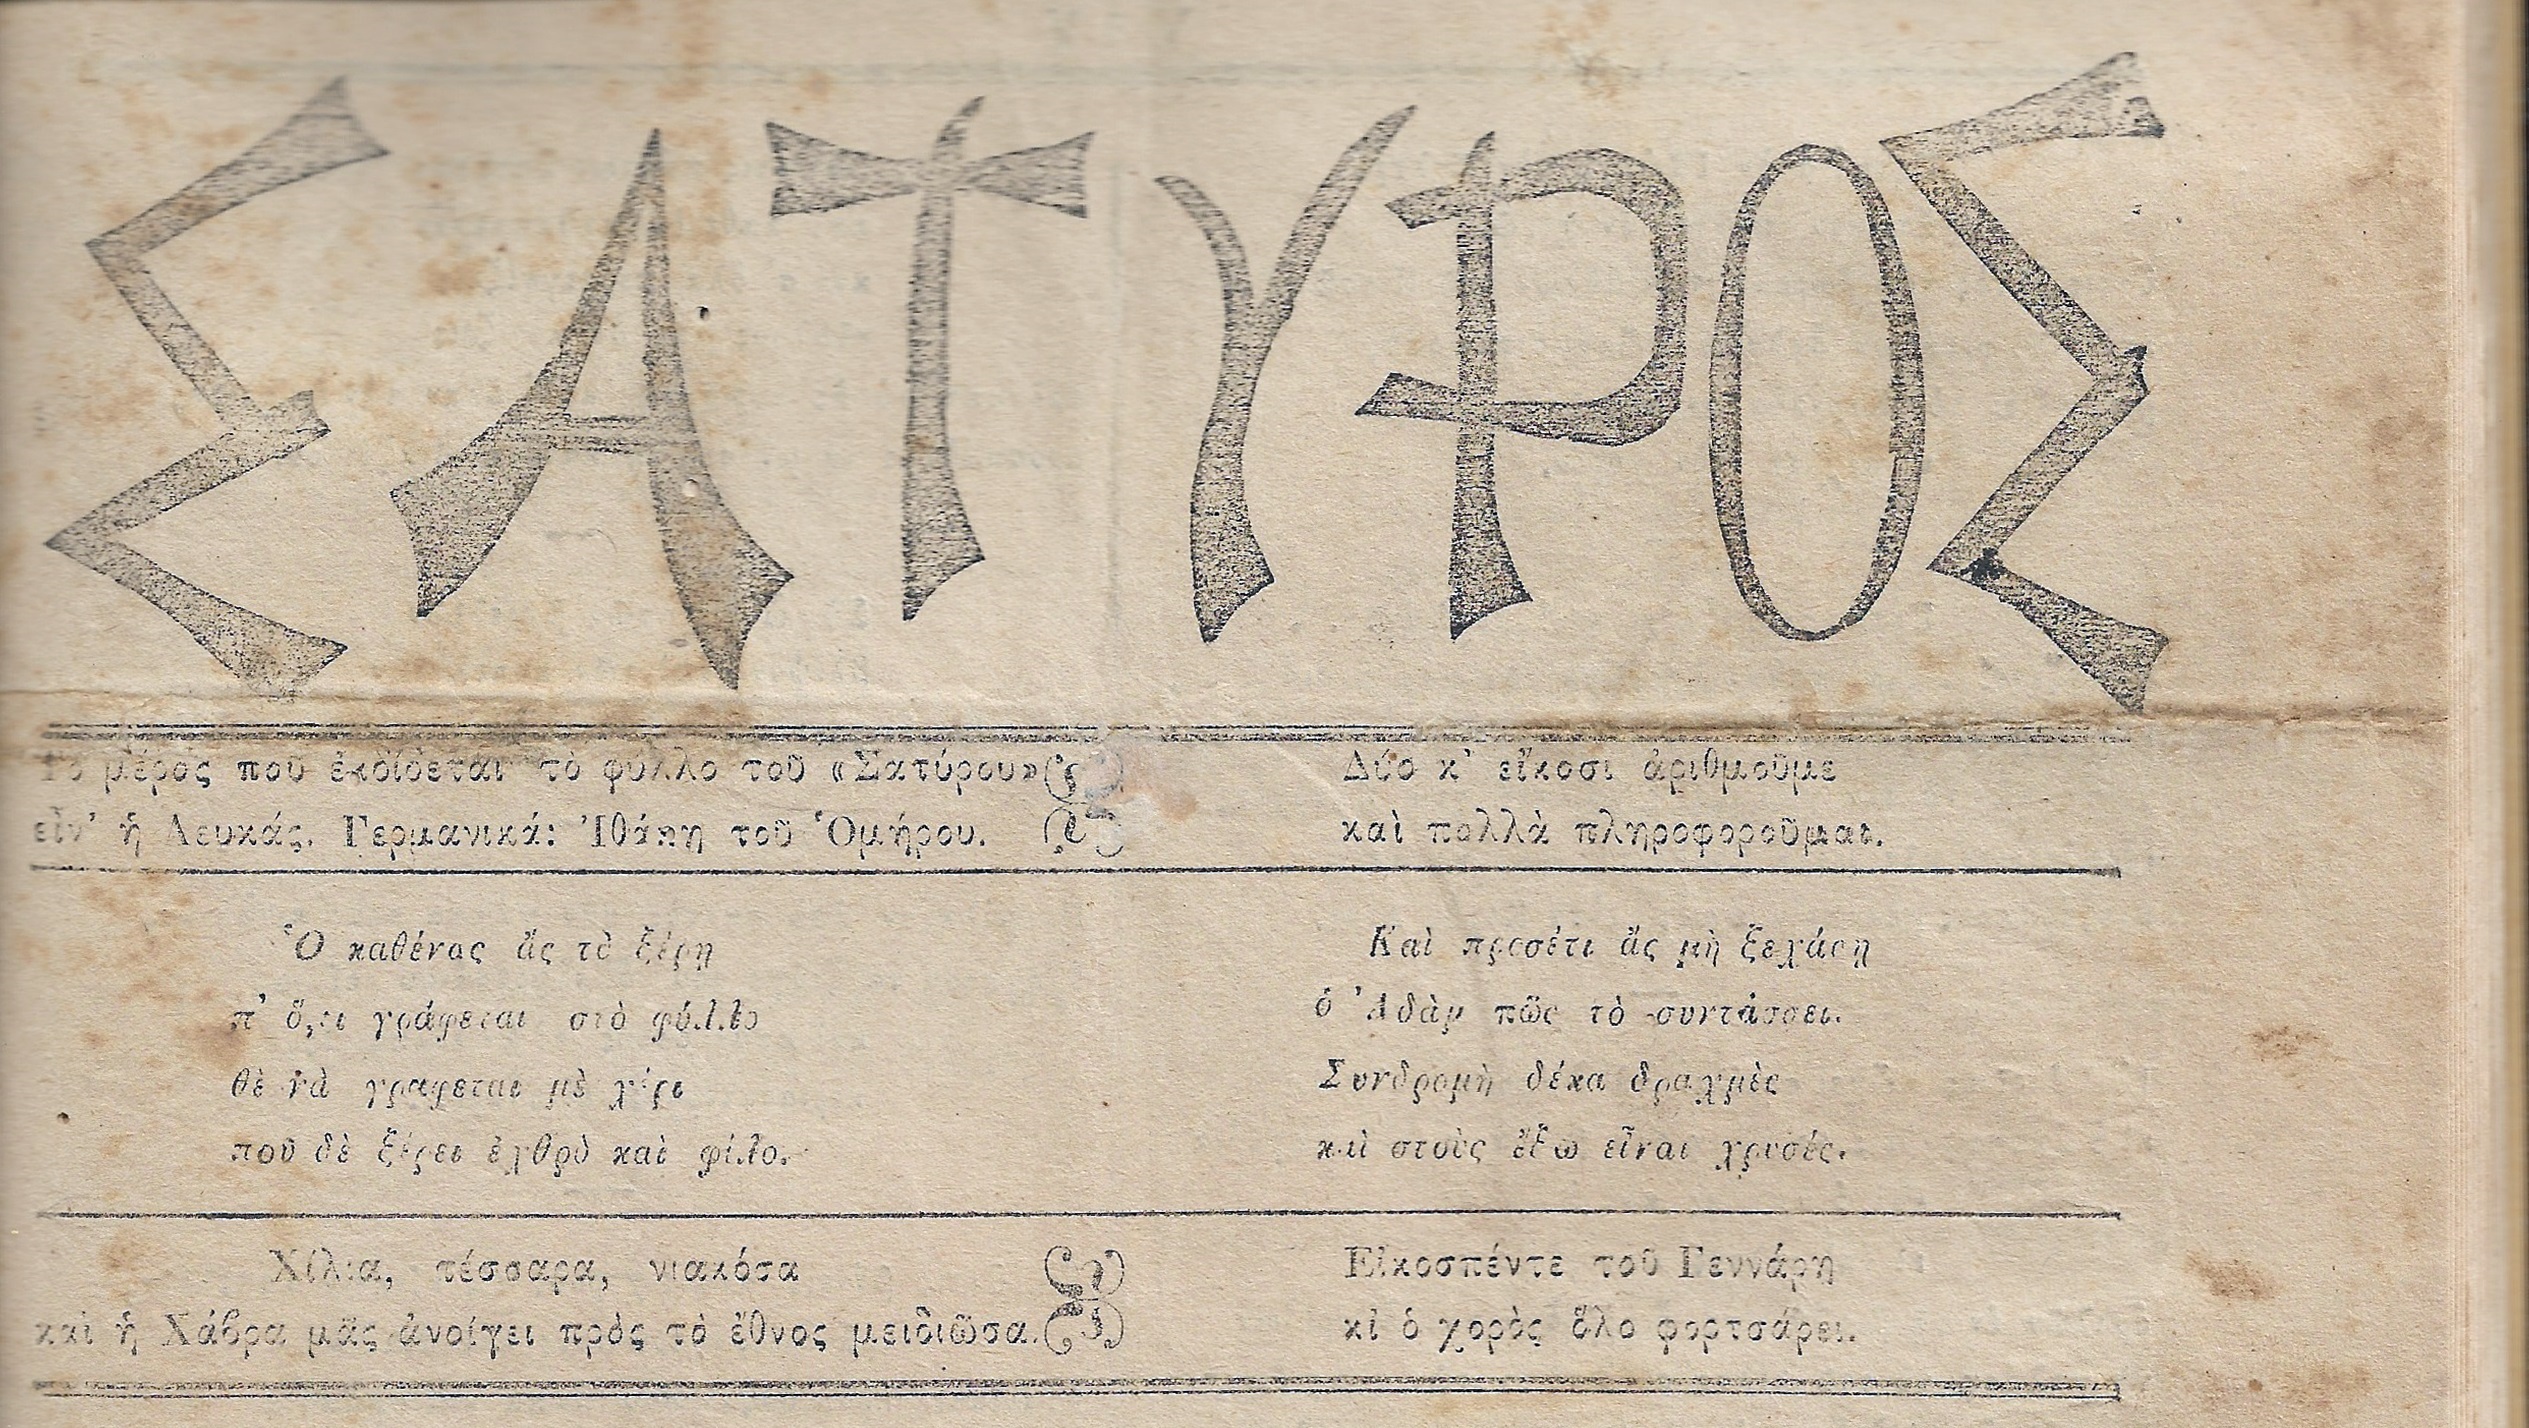 ΣΑΤΥΡΟΣ
Τὸ μέρος ποῦ ἐκδίδεται τὸ φύλλο τοῦ «Σατύρου»
εἶν' ἡ Λευκάς. Γερμανικά: Ἰθάκη τοῦ Ὁμήρου.
Δύο κ' εἴκοσι ἀριθμοῦμε
καὶ πολλὰ πληροφοροῦμαι.
Ὁ καθένας ἄς τὸ ξέρῃ
π' ὅ,τι γράφεται στὸ φύλλο
θὲ νὰ γραφεται μὲ χέρι
ποῦ δὲ ξέρει ἐχθρὸ καὶ φίλο.
Καὶ προσέτι ἄς μὴ ξεχάσῃ
ὁ Ἀδὰμ πῶς τὸ συντάσσει.
Συνδρομὴ δέκα δραχμὲς
καὶ στοὺς ἔξω εἶναι χρυσές.
Χίλια, τέσσαρα, νιακόσα
καὶ ἡ Χάβρα μᾶς ἀνοίγει πρὸς τὸ ἔθνος μειδιῶσα.
Εἰκοσπέντε τοῦ Γεννάρη
κἰ ὁ χορὸς ὅλο φορτσάρει.